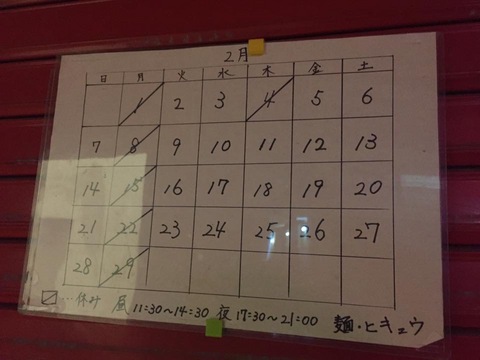 2月
日 月 火 水 木 金 土
1 2 3 4 5 6
7 8 9 10 11 12 13
14 15 16 17 18 19 20
21 22 23 24 25 26 27
28 29
…休み 昼 11:30~14:30 夜 17:30~21:00 麺・ヒキュウ